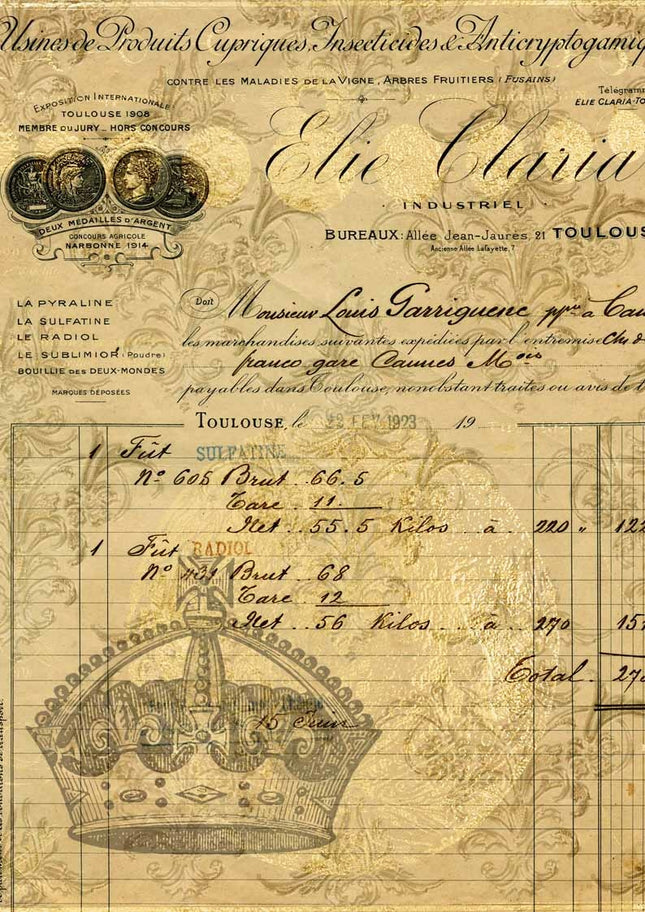 Usines de Produits Cupriques, Insecticides & Anticryptogamiq
CONTRE LES MALADIES DE LA VIGNE, ARBRES FRUITIERS (FUSAINS)
Télégramm
ELIE CLARIA-TO
EXPOSITION INTERNATIONALE
TOULOUSE 1908
MEMBRE DU JURY _ HORS CONCOURS
Elie Claria
DEUX MÉDAILLES D'ARGENT
CONCOURS AGRICOLE
NARBONNE 1914
INDUSTRIEL
BUREAUX: Allée Jean-Jaurès, 21 TOULOUS
Ancienne Allée Lafayette, 7
LA PYRALINE
LA SULFATINE
LE RADIOL
LE SUBLIMIOR (Poudre)
BOUILLIE DES DEUX-MONDES
MARQUES DÉPOSÉES
Doit Monsieur Louis Garriguenc ppre à Cau
les marchandises suivantes expédiées par l'entremise Ch de
franco gare Caunes
payables dans Toulouse, nonobstant traites ou avis de t
TOULOUSE, le 22 FEV 1923 19
1 Fût SULFATINE
No 605 Brut . 66.5
Tare . 11.
Net . 55.5 Kilos à . 220 " 122
1 Fût RADIOL
No 431 Brut . 68
Tare . 12
Net . 56 Kilos à . 270 151
Total . 27
15 Juin